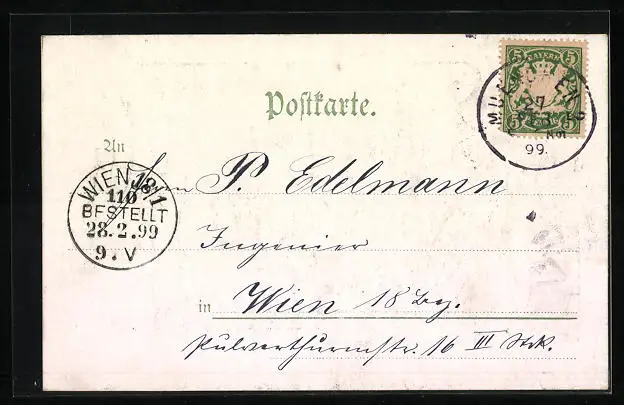 5 BAYERN 5
MUENCHEN
27
99.
Postkarte.
An
Herrn P. Edelmann
WIEN 18/1
110
BESTELLT
28.2.99
9.V
Ingenier
in Wien 18 Bz.
Pulverthurmstr. 16 III Stk.